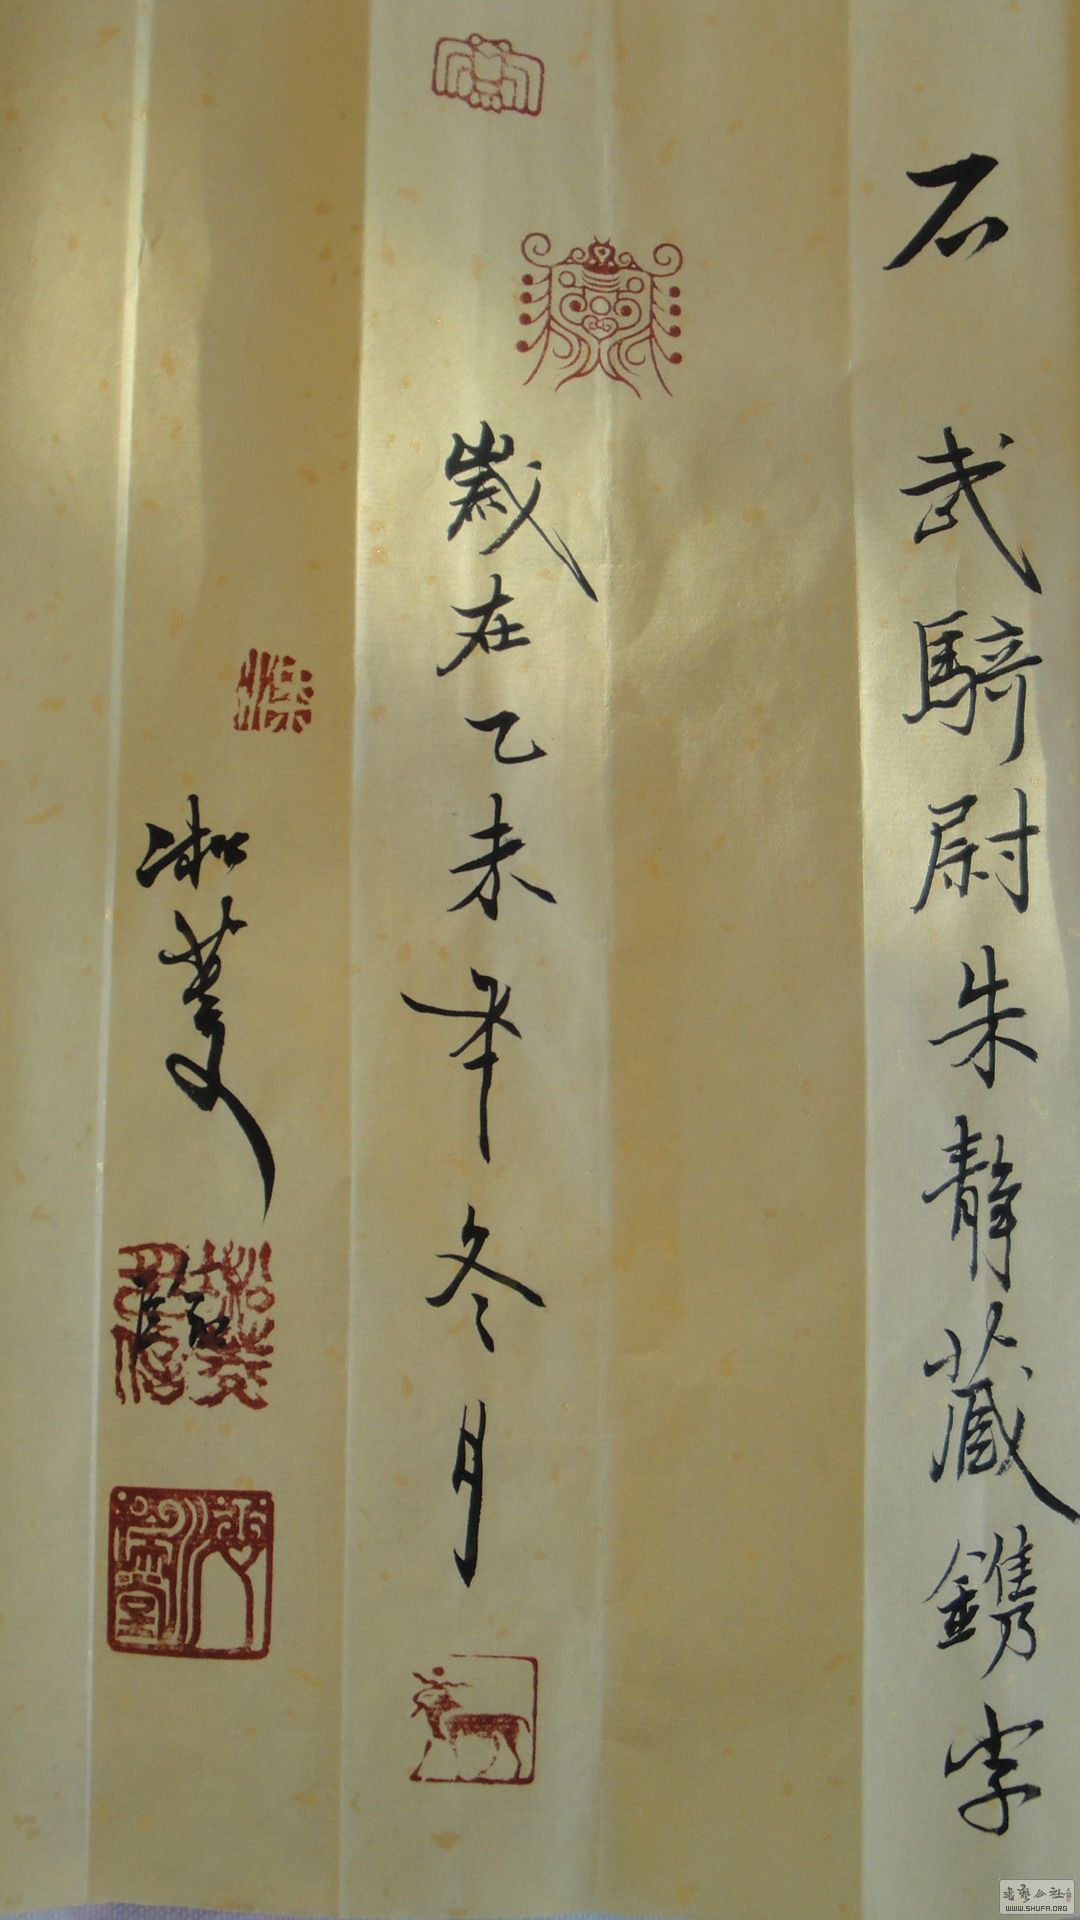 石 武騎尉朱靜藏鐫字
歲在乙未年冬月
淞菱
臨
書法公社
WWW.SHUFA.ORG